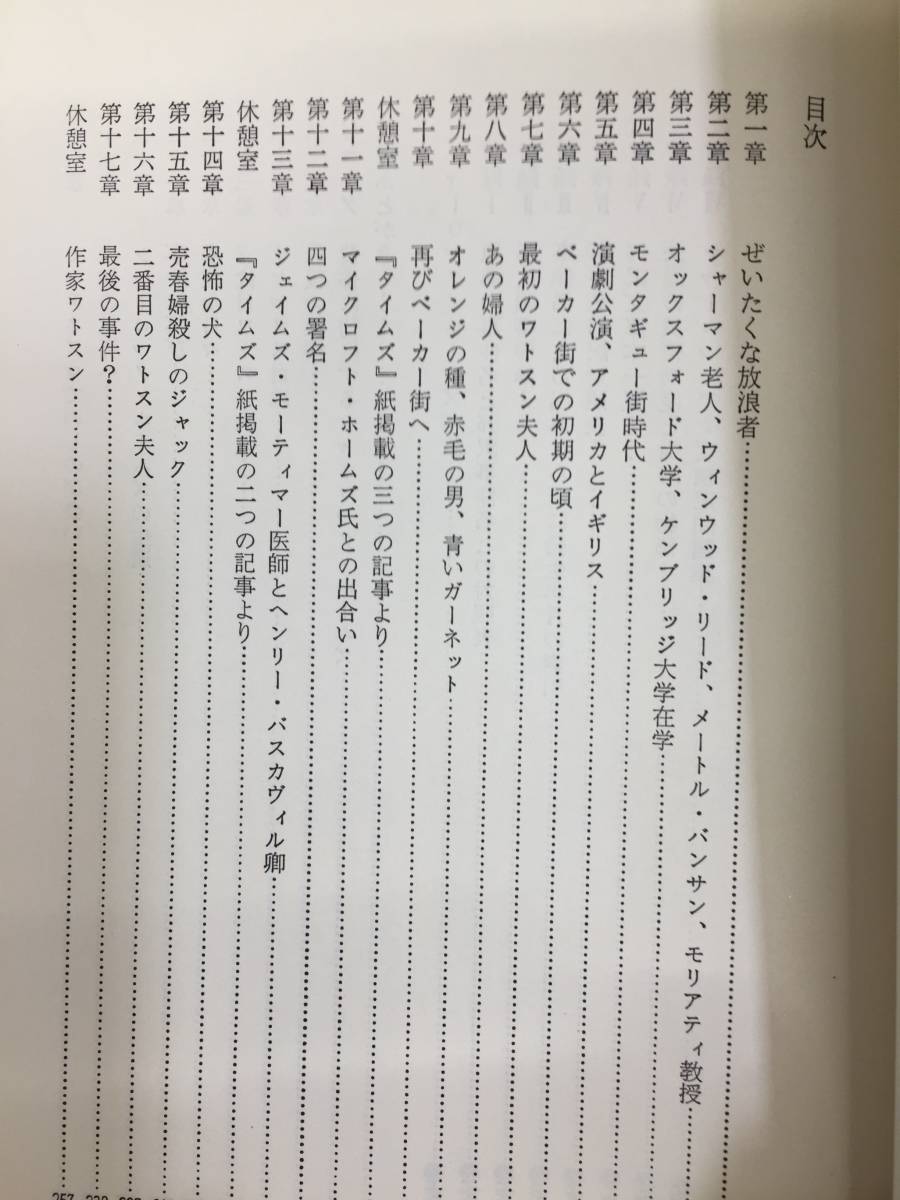 目次
第一章 ぜいたくな放浪者
第二章 シャーマン老人、ウィンウッド・リード、メートル・バンサン、モリアティ教授
第三章 オックスフォード大学、ケンブリッジ大学在学
第四章 モンタギュー街時代
第五章 演劇公演、アメリカとイギリス
第六章 ベーカー街での初期の頃
第七章 最初のワトスン夫人
第八章 あの婦人
第九章 オレンジの種、赤毛の男、青いガーネット
第十章 再びベーカー街へ
休憩室 『タイムズ』紙掲載の三つの記事より
第十一章 マイクロフト・ホームズ氏との出合い
第十二章 四つの署名
第十三章 ジェイムズ・モーティマー医師とヘンリー・バスカヴィル卿
休憩室 『タイムズ』紙掲載の二つの記事より
第十四章 恐怖の犬
第十五章 売春婦殺しのジャック
第十六章 二番目のワトスン夫人
第十七章 最後の事件？
休憩室 作家ワトスン